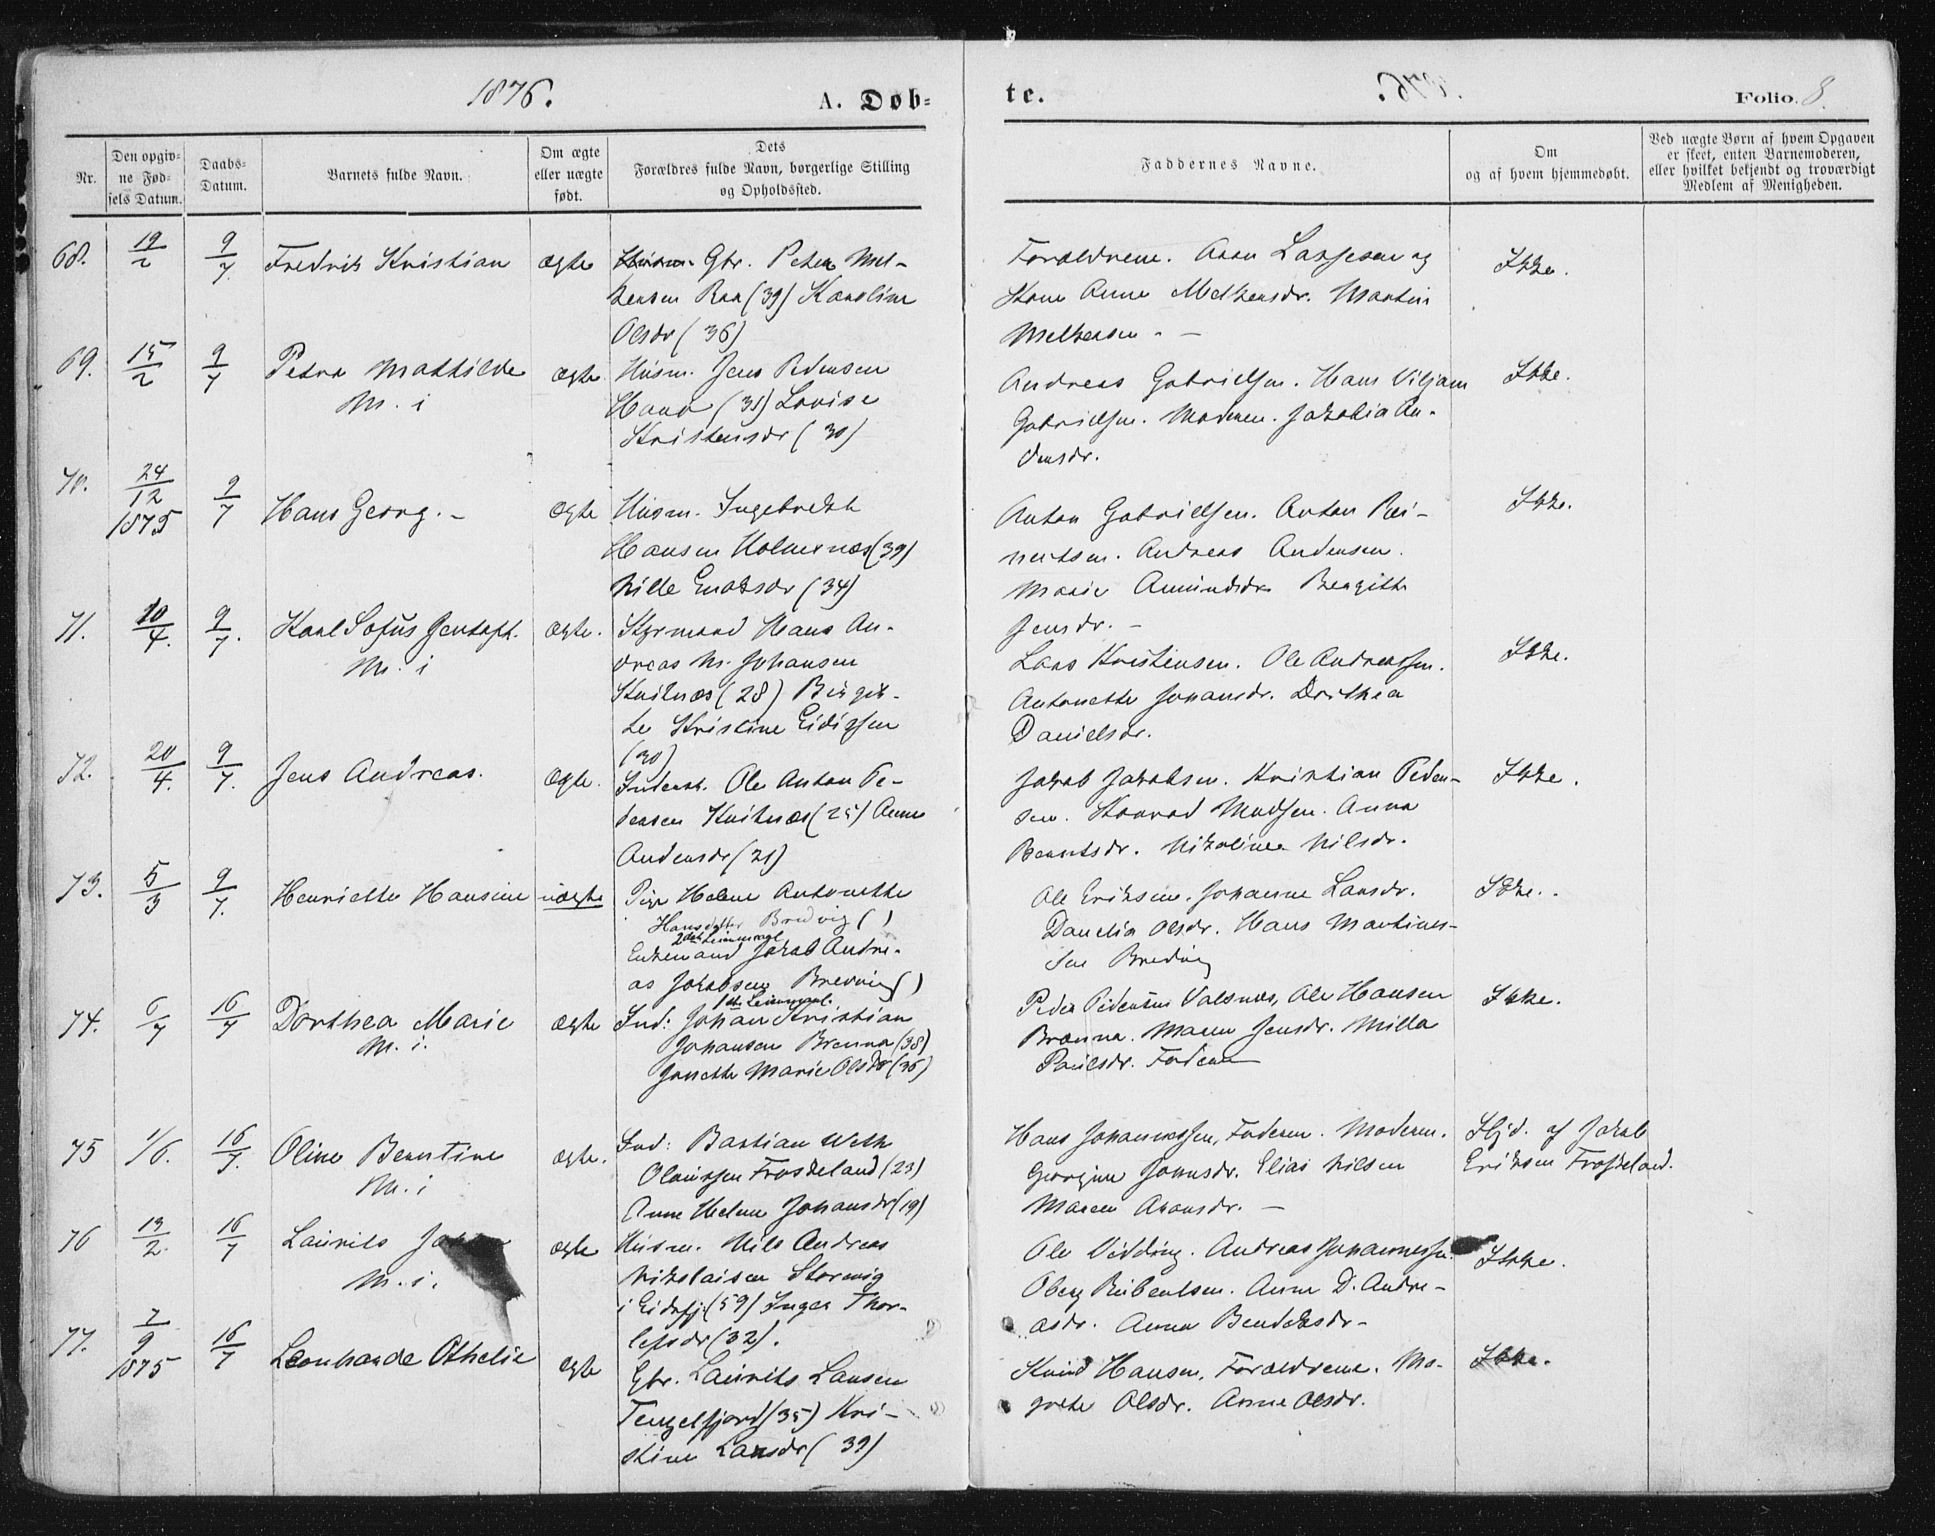 1876.
A. Døb=
te.
Folio. 8.
Nr.
Den opgiv=
ne Fød=
sels Datum.
Daabs=
Datum.
Barnets fulde Navn.
Om ægte
eller uægte
født.
Dets
Forældres fulde Navn, borgerlige Stilling
og Opholdssted.
Faddernes Navne.
Om
og af hvem hjemmedøbt.
Ved uægte Børn af hvem Opgaven
er skeet, enten Barnemoderen,
eller hvilket bekjendt og troværdigt
Medlem af Menigheden.
68.
19/2
9/7
Fredrik Kristian
ægte
Gbr. Peder Mel-
kersen Raa (39) Karoline
Olsdr (36)
Forældrene. Aron Lassesen og
Kone Anne Melkersdr. Martin
Melkersen. -
Ikke.
69.
15/2
9/7
Petra Mathilde
M. i
ægte.
Husm. Jens Pedersen
(31) Lovise
Kristensdr (30)
Andreas Gabrielsen. Hans Viljam
Gabrielsen. Moderen. Jakobia An-
dersdr.
Ikke.
70.
24/12
1875
9/7
Hans Georg. -
ægte
Husm. Ingebrekt
Hansen Holmenæs (39)
Nille Enoksdr (34)
Anton Gabrielsen. Anton Rei-
nertsen. Andreas Andersen.
Marie Amundsdr. Bergitte
Jensdr. -
Ikke.
71.
10/4.
9/7.
Karl Sofus Jentoft.
M. i
ægte.
Styrmand Hans An-
dreas M. Johansen
Kvitnæs (28) Birgit-
te Kristine Eidissen
(30)
Lars Kristensen. Ole Andreassen.
Antonette Johansdr. Dorthea
Danielsdr.
Ikke.
72.
20/4.
9/7.
Jens Andreas.
ægte.
Inderst. Ole Anton Pe-
dersen Kvitnæs (25) Anne
Andersdr (21)
Jakob Jakobsen. Kristian Peder-
sen. Konrad Madsen. Anna
Berntsdr. Nikoline Nilsdr.
Ikke.
73.
5/3
9/7.
Henriette Hansine
uægte
Pige Helene Antonette
Hansdatter Bredvig ( )
2det Leiermaal
Enkemand Jakob Andre-
as Jakobsen Bredvig ( )
1ste Leiermaal.
Ole Eriksen. Johanne Larsdr.
Danelia Olsdr. Hans Martines-
sen Bredvig
Ikke.
74.
6/7
16/7
Dorthea Marie
M. i.
ægte
Ind: Johan Kristian
Johansen Brenna (38)
Janette Marie Olsdr (36)
Peder Pedersen Valsnæs, Ole Hansen
Brænna. Maren Jensdr. Milla
Paulsdr. Faderen
Ikke.
75
1/6.
16/7.
Oline Berntine
M. i
ægte.
Ind: Bastian Weth
Olaussen Froskeland (23)
Anne Helene Johansdr (19)
Hans Johannessen, Faderen. Moderen.
Georgine Jonnsdr. Elias Nilsen
Maren Aronsdr. -
Hjd. af Jakob
Eriksen Froskeland.
76
13/2.
16/7
Laurits
M. i.
ægte
Husm. Nils Andreas
Nikolaisen Storvig
i Eidsfj. (59) Inger Thor-
lefsdr (32).
Ole Vidding. Andreas Johannessen.
Oberg Rubentsen. Anne D. Andre-
asdr. Anna Bendiksdr-
Ikke.
77.
7/9
1875
16/7
Leonharde Othelie
ægte
Gbr. Laurits Larsen
Tengelfjord (35) Kri-
stine Larsdr (39)
Knud Hansen, Forældrene. Ma-
grete Olsdr. Anne Olsdr.
Ikke.